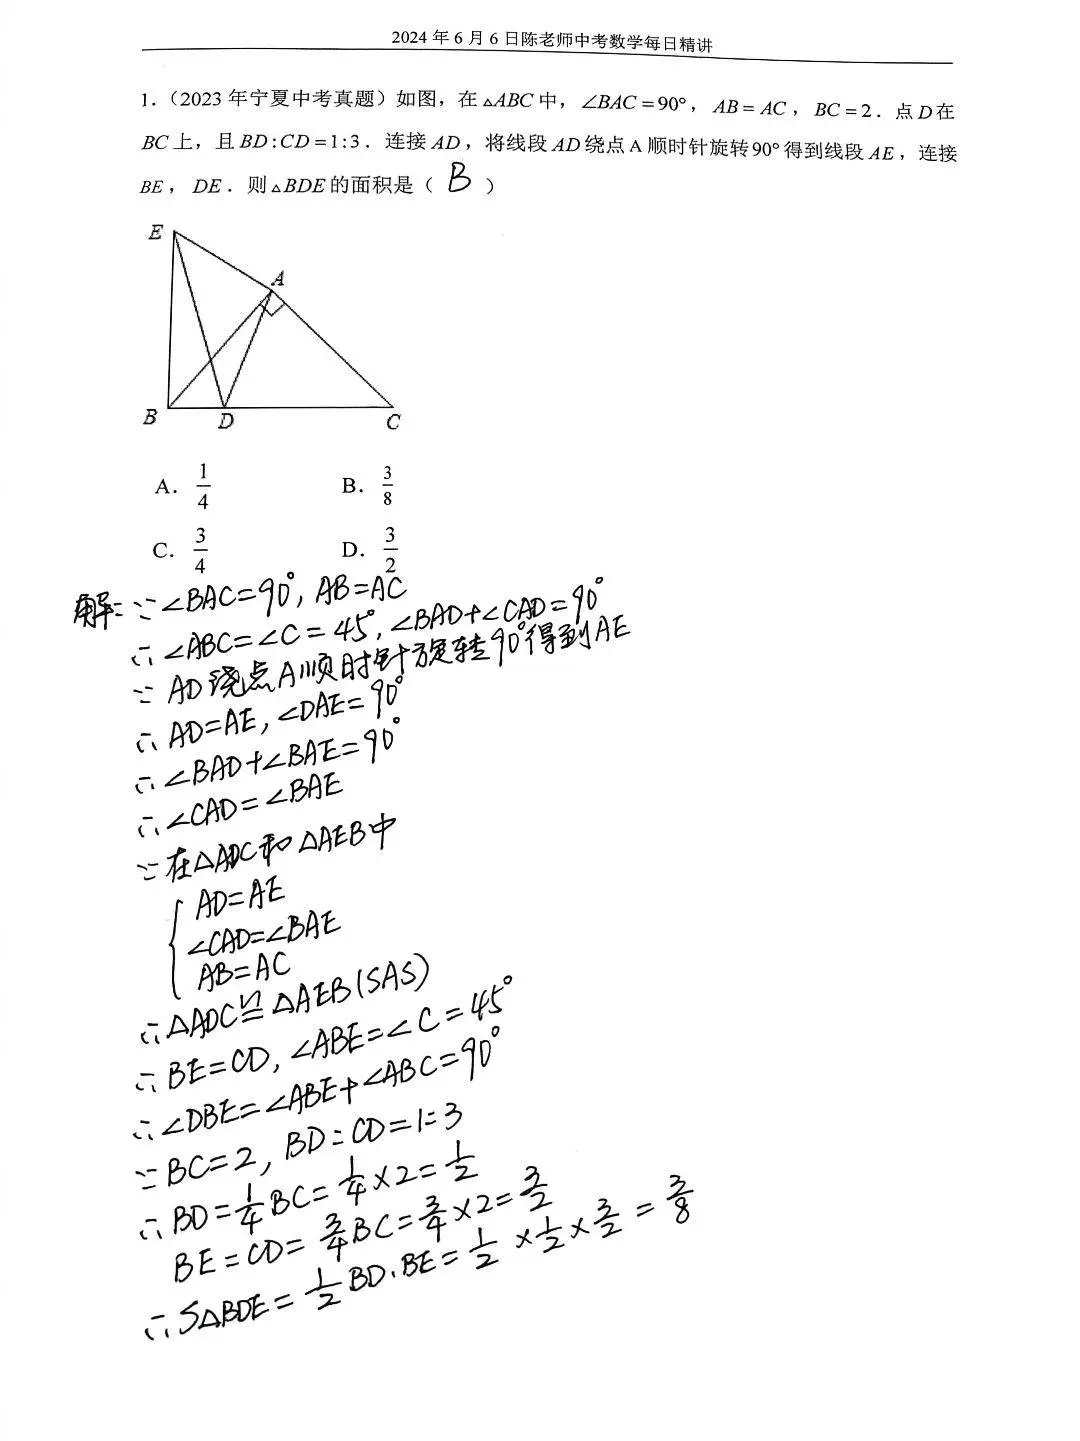 2024年6月6日陈老师中考数学每日精讲
1.（2023年宁夏中考真题）如图，在△ABC中，∠BAC=90°，AB=AC，BC=2．点D在
BC上，且BD:CD=1:3．连接AD，将线段AD绕点A顺时针旋转90°得到线段AE，连接
BE，DE．则△BDE的面积是（ B ）
E
A
B D C
A. 1/4 B. 3/8
C. 3/4 D. 3/2
解:∵∠BAC=90°, AB=AC
∴∠ABC=∠C=45°, ∠BAD+∠CAD=90°
∵AD绕点A顺时针旋转90°得到AE
∴AD=AE, ∠DAE=90°
∴∠BAD+∠BAE=90°
∴∠CAD=∠BAE
∵在△ADC和△AEB中
AD=AE
∠CAD=∠BAE
AB=AC
∴△ADC≌△AEB(SAS)
∴BE=CD, ∠ABE=∠C=45°
∴∠DBE=∠ABE+∠ABC=90°
∵BC=2, BD:CD=1:3
∴BD=1/4BC=1/4×2=1/2
BE=CD=3/4BC=3/4×2=3/2
∴S△BDE=1/2BD·BE=1/2×1/2×3/2=3/8